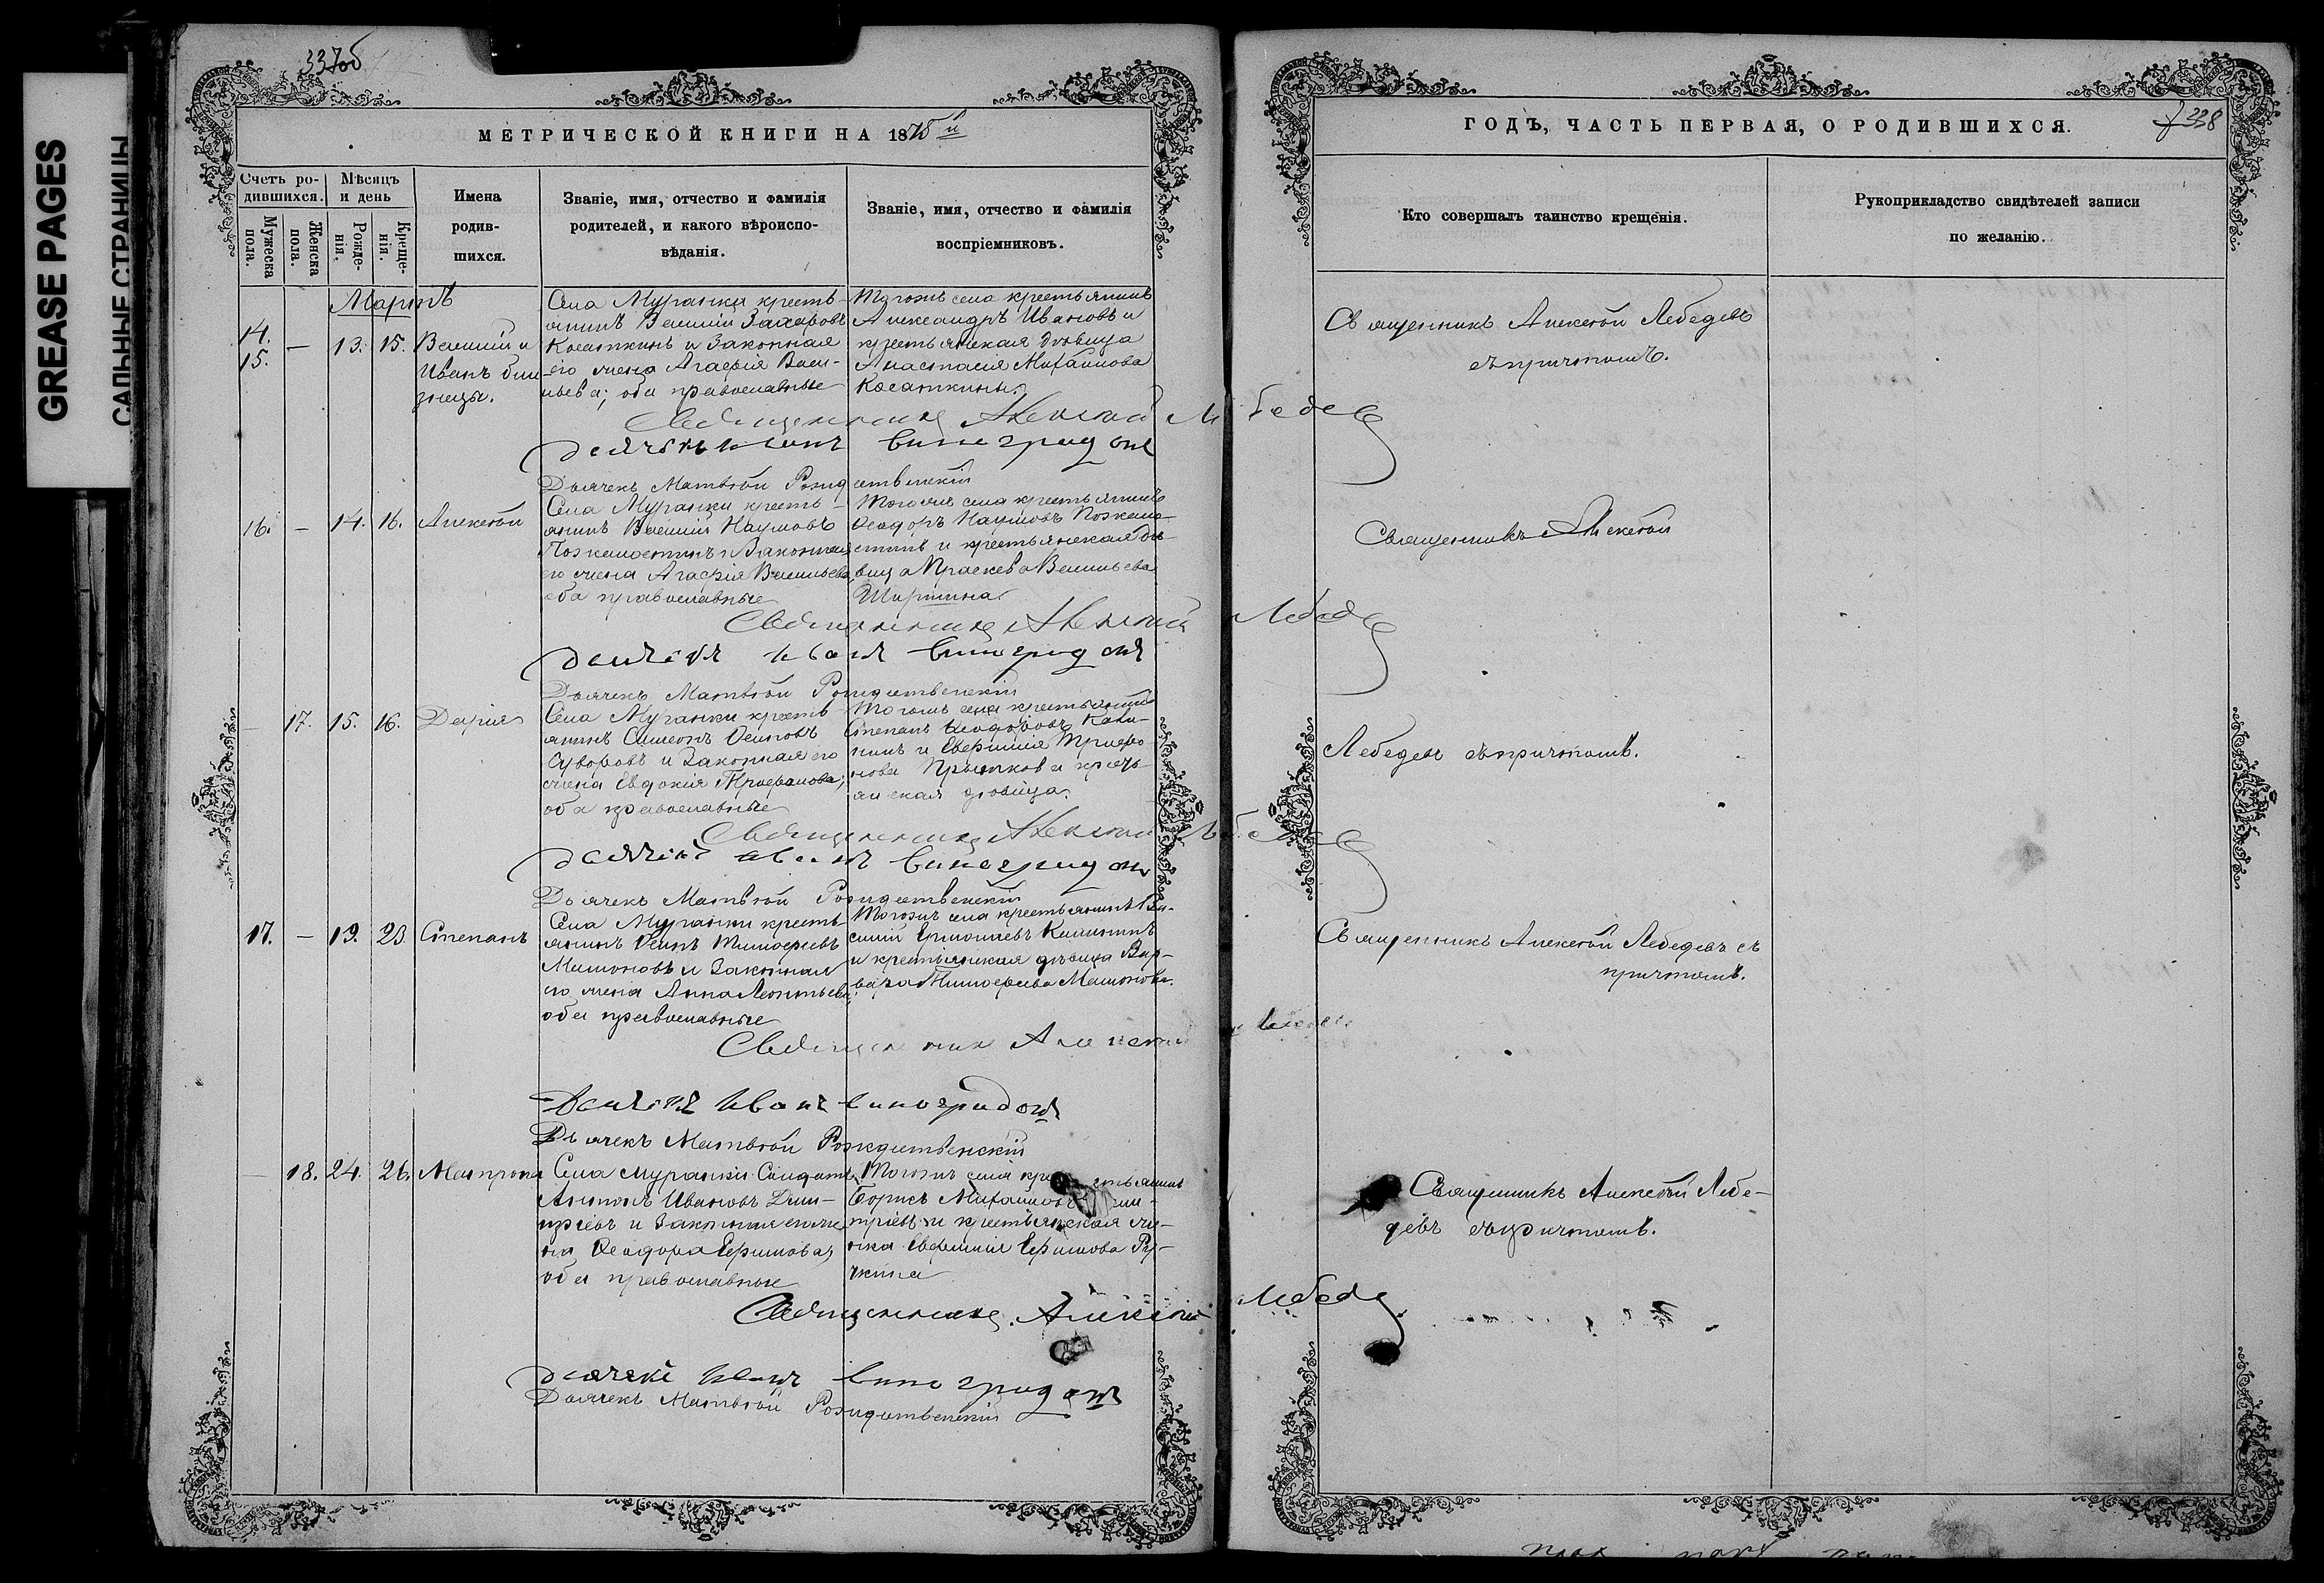 GREASE PAGES
САЛЬНЫЕ СТРАНИЦЫ
337об
МЕТРИЧЕСКОЙ КНИГИ НА 187
Счетъ ро-
дившихся.
Мѣсяцъ
и день
Мужеска пола.
Женска пола.
Рожде-
нія.
Креще-
нія.
Имена
родив-
шихся.
Званіе, имя, отчество и фамилія
родителей, и какого вѣроиспо-
вѣданія.
Званіе, имя, отчество и фамилія
воспріемниковъ.
Мартъ
14.
15.
—
13.
15.
Василій и
Иванъ близ
нецы.
Села Муранки кресть-
янинъ Василій Захаровъ
Касаткинъ и законная
его жена Агафія Васи-
льева; оба православные
Тогожъ села крестьянинъ
Александръ Ивановъ и
крестьянская дѣвица
Анастасія Михайлова
Касаткины.
Священникъ Алексѣй Лебедев
Дьячекъ Иванъ Виноградовъ
Дьячекъ Матвѣй Рождественскій
16.
—
14.
16.
Алексѣй
Села Муранки кресть-
янинъ Василій Наумовъ
и законная
его жена Агафія Васильева,
оба православные
Тогожъ села крестьянинъ
Ѳеодоръ Наумовъ
и крестьянская дѣ-
вица Праскева Васильева
Священникъ Алексѣй Лебедев
Дьячекъ Иванъ Виноградовъ
Дьячекъ Матвѣй Рождественскій
—
17.
15.
16.
Дарія
Села Муранки кресть-
янинъ Симеонъ Осиповъ
Суворовъ и законная его
жена Евдокія Трофимова;
оба православные
Тогожъ села крестьянинъ
Степанъ Ѳеодоровъ
и Евфимія
кресть-
янская дѣвица.
Священникъ Алексѣй Лебедев
Дьячекъ Иванъ Виноградовъ
Дьячекъ Матвѣй Рождественскій
17.
—
19.
23.
Степанъ
Села Муранки кресть
янинъ Осипъ Тимофеевъ
и законная
его жена Анна Леонтьева;
оба православные
Тогожъ села крестьянинъ Ва-
силій
и крестьянская дѣвица Вар-
вара Тимофеева
Священникъ Алексѣй
Дьячекъ Иванъ Виноградовъ
Дьячекъ Матвѣй Рождественскій
—
18.
24.
26.
Матрона
Села Муранки Солдатъ
Антонъ Ивановъ Дми-
тріевъ и законная его же
на Ѳеодора Ефимова,
оба православные
Тогожъ села крестьянинъ
Борисъ Михайловъ Дми-
тріевъ и крестьянская же-
нка Евфимія Ефимова
Священникъ Алексѣй Лебедев
Дьячекъ Иванъ Виноградовъ
Дьячекъ Матвѣй Рождественскій
ГОДЪ, ЧАСТЬ ПЕРВАЯ, О РОДИВШИХСЯ.
338
Кто совершалъ таинство крещенія.
Рукоприкладство свидѣтелей записи
по желанію.
Священникъ Алексѣй Лебедевъ
съ причтомъ.
Священникъ Алексѣй
Лебедевъ съ причтомъ.
Священникъ Алексѣй Лебедевъ съ
причтомъ.
Священникъ Алексѣй Лебе-
девъ съ причтомъ.